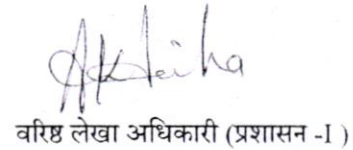 वरिष्ठ लेखा अधिकारी (प्रशासन -I )